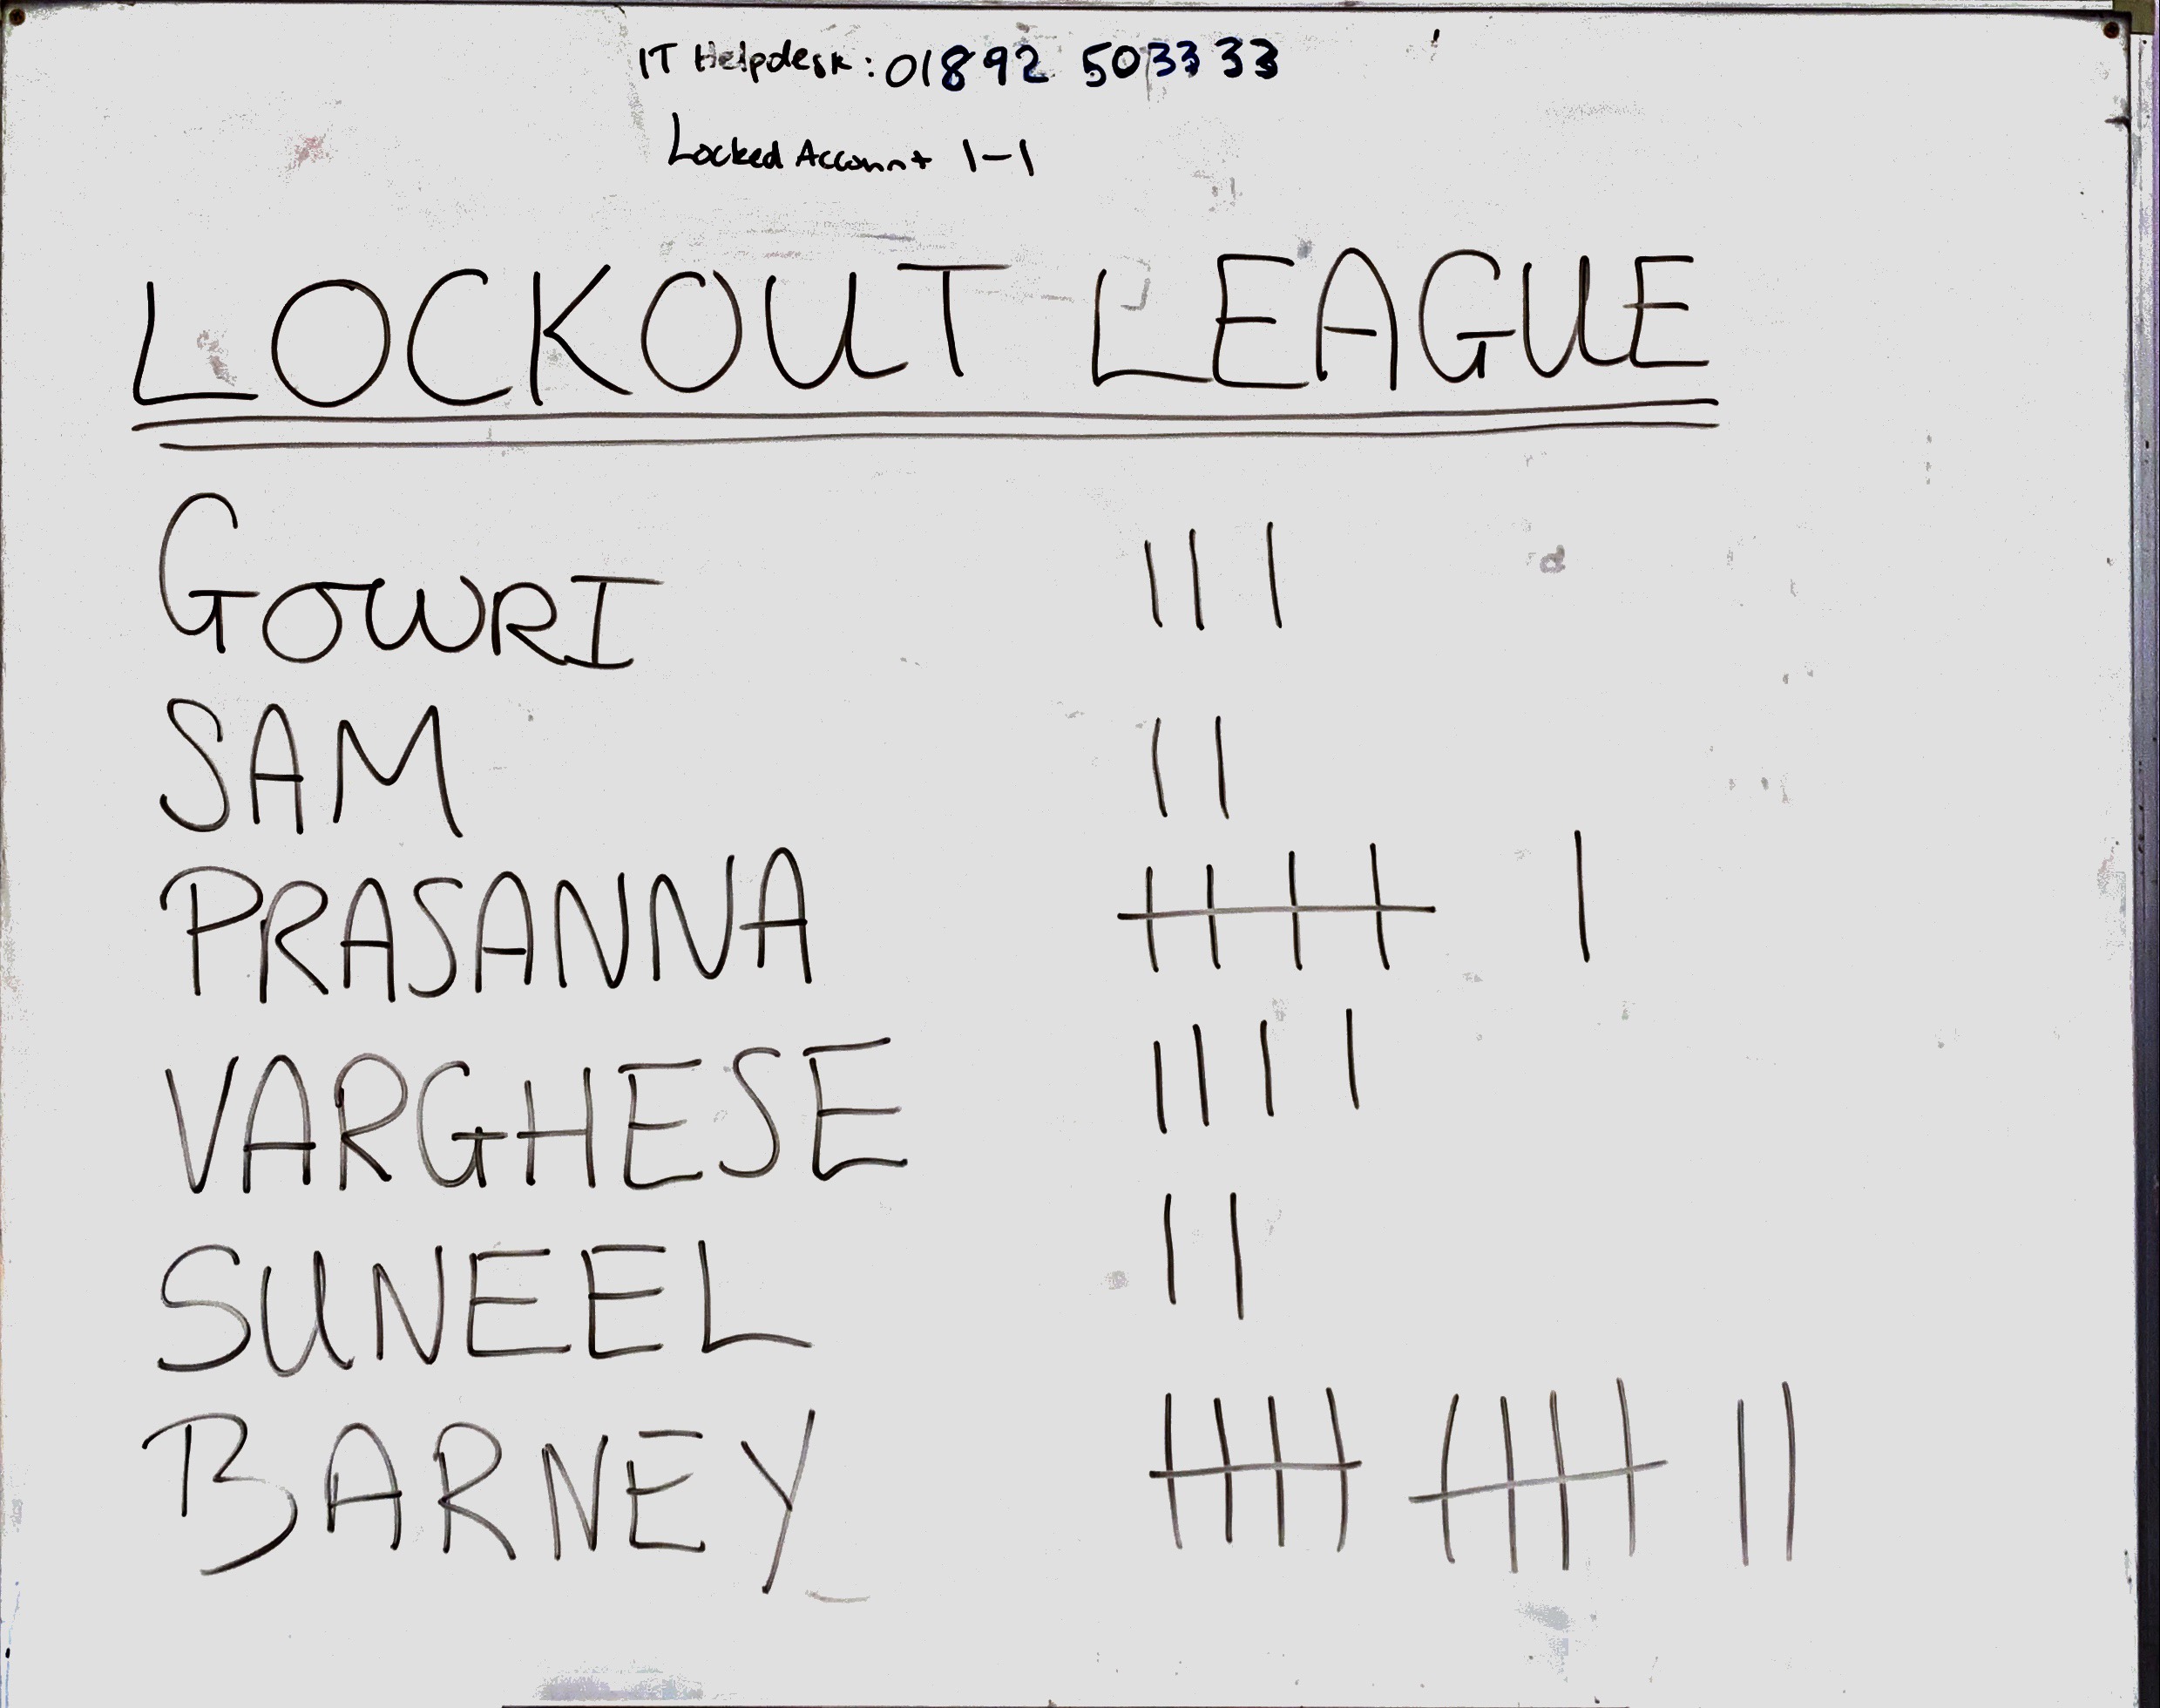 IT Helpdesk: 01892 503333
Locked Account 1-1
LOCKOUT LEAGUE
GOWRI III
SAM II
PRASANNA IIII I
VARGHESE IIII
SUNEEL II
BARNEY IIII IIII II